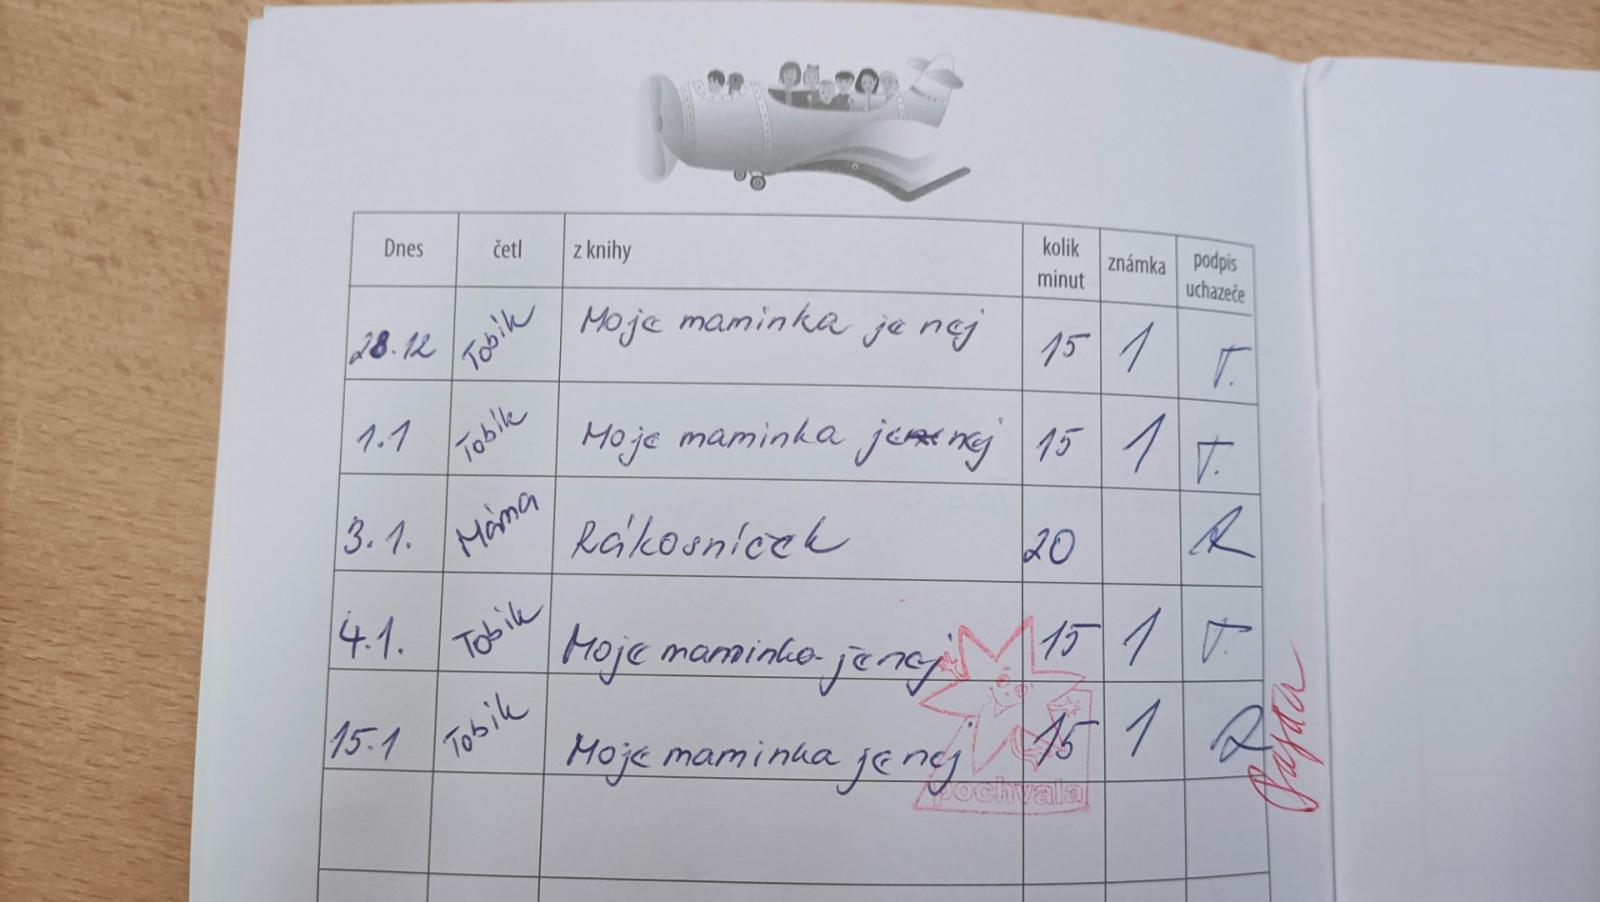 Dnes četl z knihy kolik minut známka podpis uchazeče
28.12 Tobík Moje maminka je nej 15 1 T.
1.1 Tobík Moje maminka je nej 15 1 T.
3.1. Máma Rákosníček 20 R
4.1. Tobík Moje maminka je nej 15 1 T.
15.1 Tobík Moje maminka je nej 15 1 R
pochvala